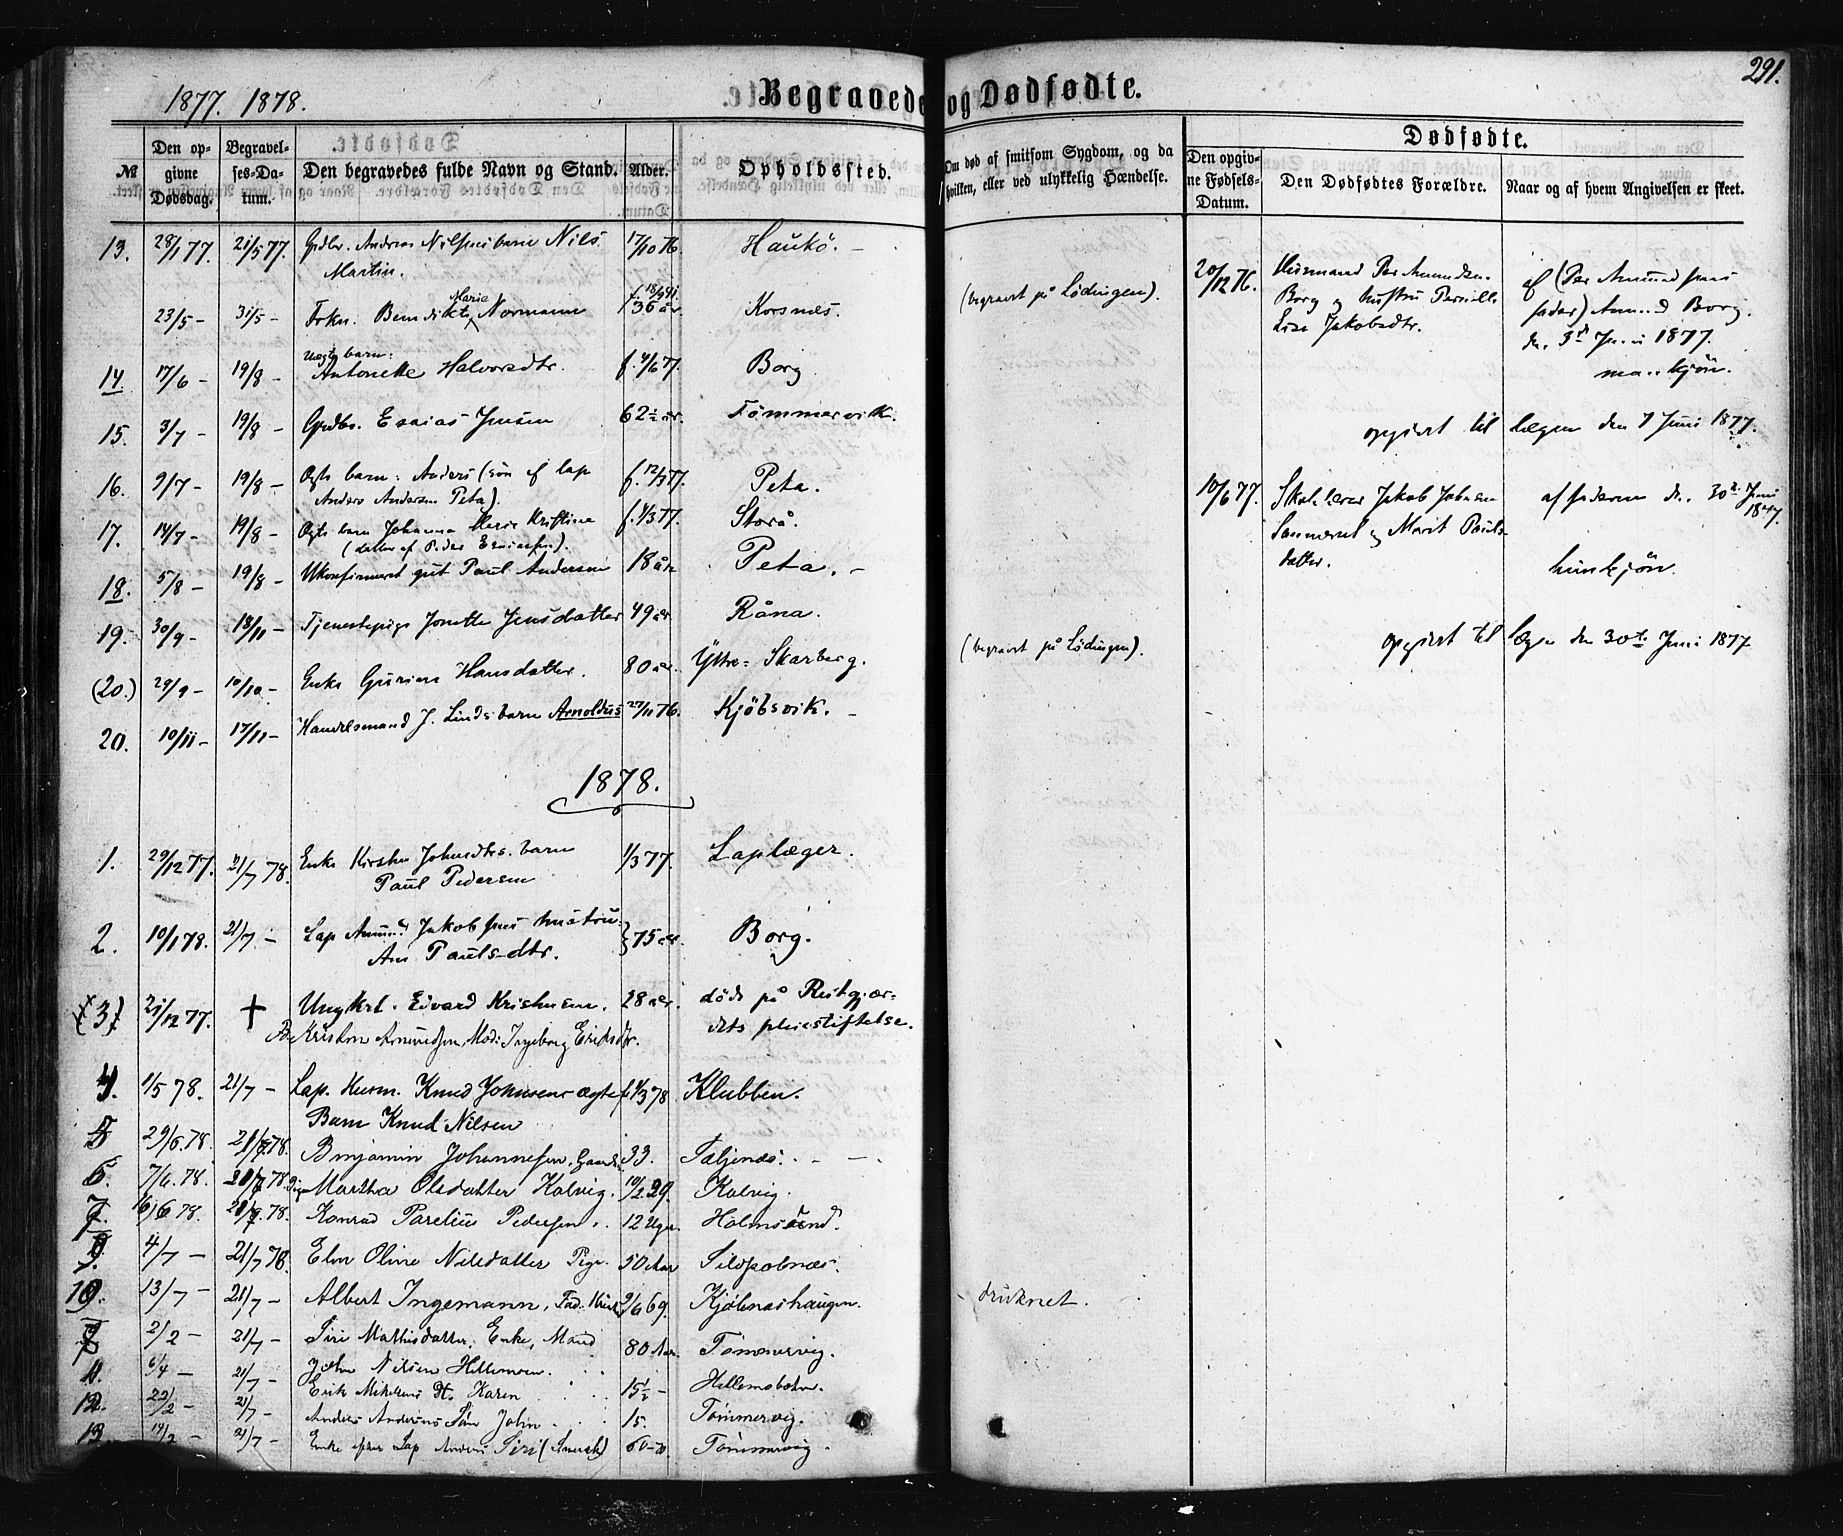 291.
1877. 1878. Begravede og Dødfødte.
№ Den opgivne Dødsdag. Begravelses-Datum. Den begravedes fulde Navn og Stand. Alder. Opholdssted. Om død af smitsom Sygdom, og da hvilken, eller ved ulykkelig Hændelse. Dødfødte.
Den opgivne Fødsels-Datum. Den Dødfødtes Forældre. Naar og af hvem Angivelsen er skeet.
13. 28/1 77. 21/5 77. Grdbr. Andreas Nilsens barn Nils 17/10 76. Haukö. –
Martin.
23/5 – 31/5 – Frkn. Benedikte Marie Normann f. 18/9 41. 36 år. Korsnæs. (begravet på Lødingen).
20/12 76. Husmand Per Amundsen Borg og hustru Pernille Lise Jakobsdtr. af (Per Amundsens fader) Amund Borg. den 3d Juni 1877. mankjön.
14. 17/6 – 19/8 – Uægt barn: Antonette Halvorsdtr. f. 4/6 77. Borg
15. 3/7 – 19/8 – Grdbr. Esaias Jensen 62½ år. Tömmervik.
opgivet til Lægen den 7 Juni 1877.
16. 9/7 – 19/8 – Ægte barn: Anders (sön af lap f. 12/3 77. Peta.
Anders Andersen Peta).
10/6 77. Skolelærer Jakob Johnsen Sannernet og Marit Pauls- datter. af faderen den 30te Juni 1877. hunkjön.
17. 14/7 – 19/8 – Ægte barn Johanna Marie Kristine f. 1/3 77. Storå.
(datter af Peder Esaiassen).
18. 5/8 – 19/8 – Ukonfirmeret gut Paul Andersen 18 år Peta. –
19. 30/9 – 18/11 – Tjenestepige Jonette Jensdatter 49 år Råna.
opgivet til Lægen den 30te Juni 1877
(20.) 29/9 – 10/10 – Enke Gurine Hansdatter. 80 år. Yttre-Skarberg. (begravet på Lödingen).
20. 10/11 – 17/11 – Handelsmand J. Linds barn Arnoldus 27/11 76. Kjöbsvik. –
1878.
1. 29/12 77. 21/7 78. Enke Kirsten Johnsdtrs. barn 1/3 77. Laplæger.
Paul Pedersen
2. 10/1 78. 21/7 – Lap Amund Jakobsens hustru 75 år. Borg.
Ane Paulsdtr.
(3) 21/12 77. † Ungkrl. Edvard Kristensen. 28 år. döde på Reitgjær-
Kristen Amundsen, Mod: Ingeborg Eriksdtr. dets pleiestiftelse.
4. 1/5 78. 21/7 – Lap. Husm. Knud Johnsens ægte f. 1/3 78 Klubben.
Barn Knud Nilsen
5 29/6. 78. 21/7. 78. Benjamin Johannesen, Gaardm. 33. Taljenæs. – –
6. 7/6. 78. 21/7 78. Pige Martha Olsdatter Kalvig. 10/2 29. Kalvig.
7. 16/6 78. 21/7. 78. Konrad Parelius Pedersen. 12 Uger. Holmsund.
9. 4/7 – 21/7 78. Elen Oline Nilsdatter Pige. 50 Aar Sildpolnæs.
10. 13/7 – 21/7 – Albert Ingemann, 9/6 69. Kjölnæshaugen. druknet.
8 2/2 – 21/7 – Siri Mathisdatter, Enke, 80 Aar. Tömmervig.
11. 6/4 – 21/7 – John Nilsen Hellemoen.
12. 22/2 – 21/7 – Erik Mikkelsens Dt. Karen 15½ – Hellemobotn.
12. 21/7 – Anders Andersens Sön John. 15. Tömmervig.
13. 14/2 – 21/7 – Enke efter Lap Anders Siri 60–70 Tömmervig.